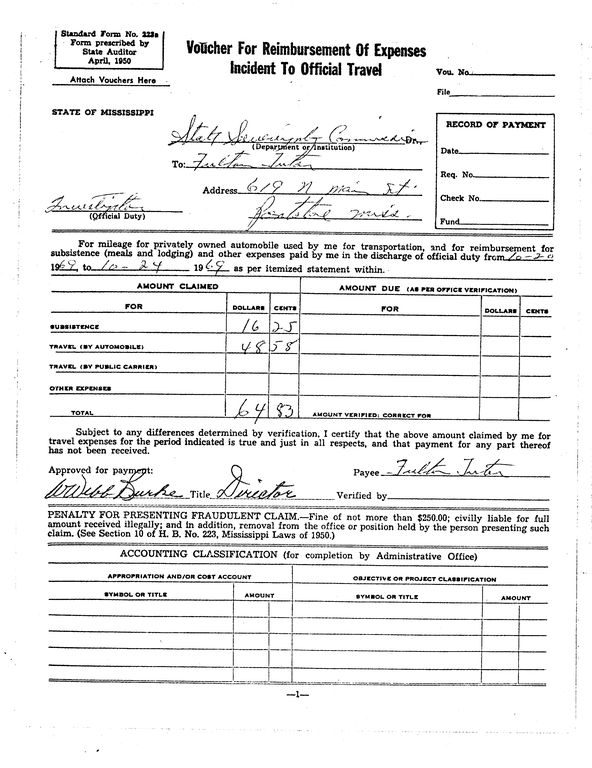 Standard Form No. 223a
Form prescribed by
State Auditor
April, 1950
Attach Vouchers Here
Voucher For Reimbursement Of Expenses
Incident To Official Travel
Vou. No.
File
STATE OF MISSISSIPPI
State Sovereignty Commission Dr.,
(Department or Institution)
To: Fulton Tutor
Address 619 N main St.
miss.
Investigator
(Official Duty)
RECORD OF PAYMENT
Date
Req. No.
Check No.
Fund
For mileage for privately owned automobile used by me for transportation, and for reimbursement for
subsistence (meals and lodging) and other expenses paid by me in the discharge of official duty from 10-20
1969 to 10-24 1969 as per itemized statement within.
AMOUNT CLAIMED
AMOUNT DUE (AS PER OFFICE VERIFICATION)
FOR DOLLARS CENTS FOR DOLLARS CENTS
SUBSISTENCE 16 25
TRAVEL (BY AUTOMOBILE) 48 58
TRAVEL (BY PUBLIC CARRIER)
OTHER EXPENSES
TOTAL 64 83 AMOUNT VERIFIED: CORRECT FOR
Subject to any differences determined by verification, I certify that the above amount claimed by me for
travel expenses for the period indicated is true and just in all respects, and that payment for any part thereof
has not been received.
Approved for payment:
Payee Fulton Tutor
W Webb Burke Title Director Verified by
PENALTY FOR PRESENTING FRAUDULENT CLAIM.—Fine of not more than $250.00; civilly liable for full
amount received illegally; and in addition, removal from the office or position held by the person presenting such
claim. (See Section 10 of H. B. No. 223, Mississippi Laws of 1950.)
ACCOUNTING CLASSIFICATION (for completion by Administrative Office)
APPROPRIATION AND/OR COST ACCOUNT OBJECTIVE OR PROJECT CLASSIFICATION
SYMBOL OR TITLE AMOUNT SYMBOL OR TITLE AMOUNT
—1—